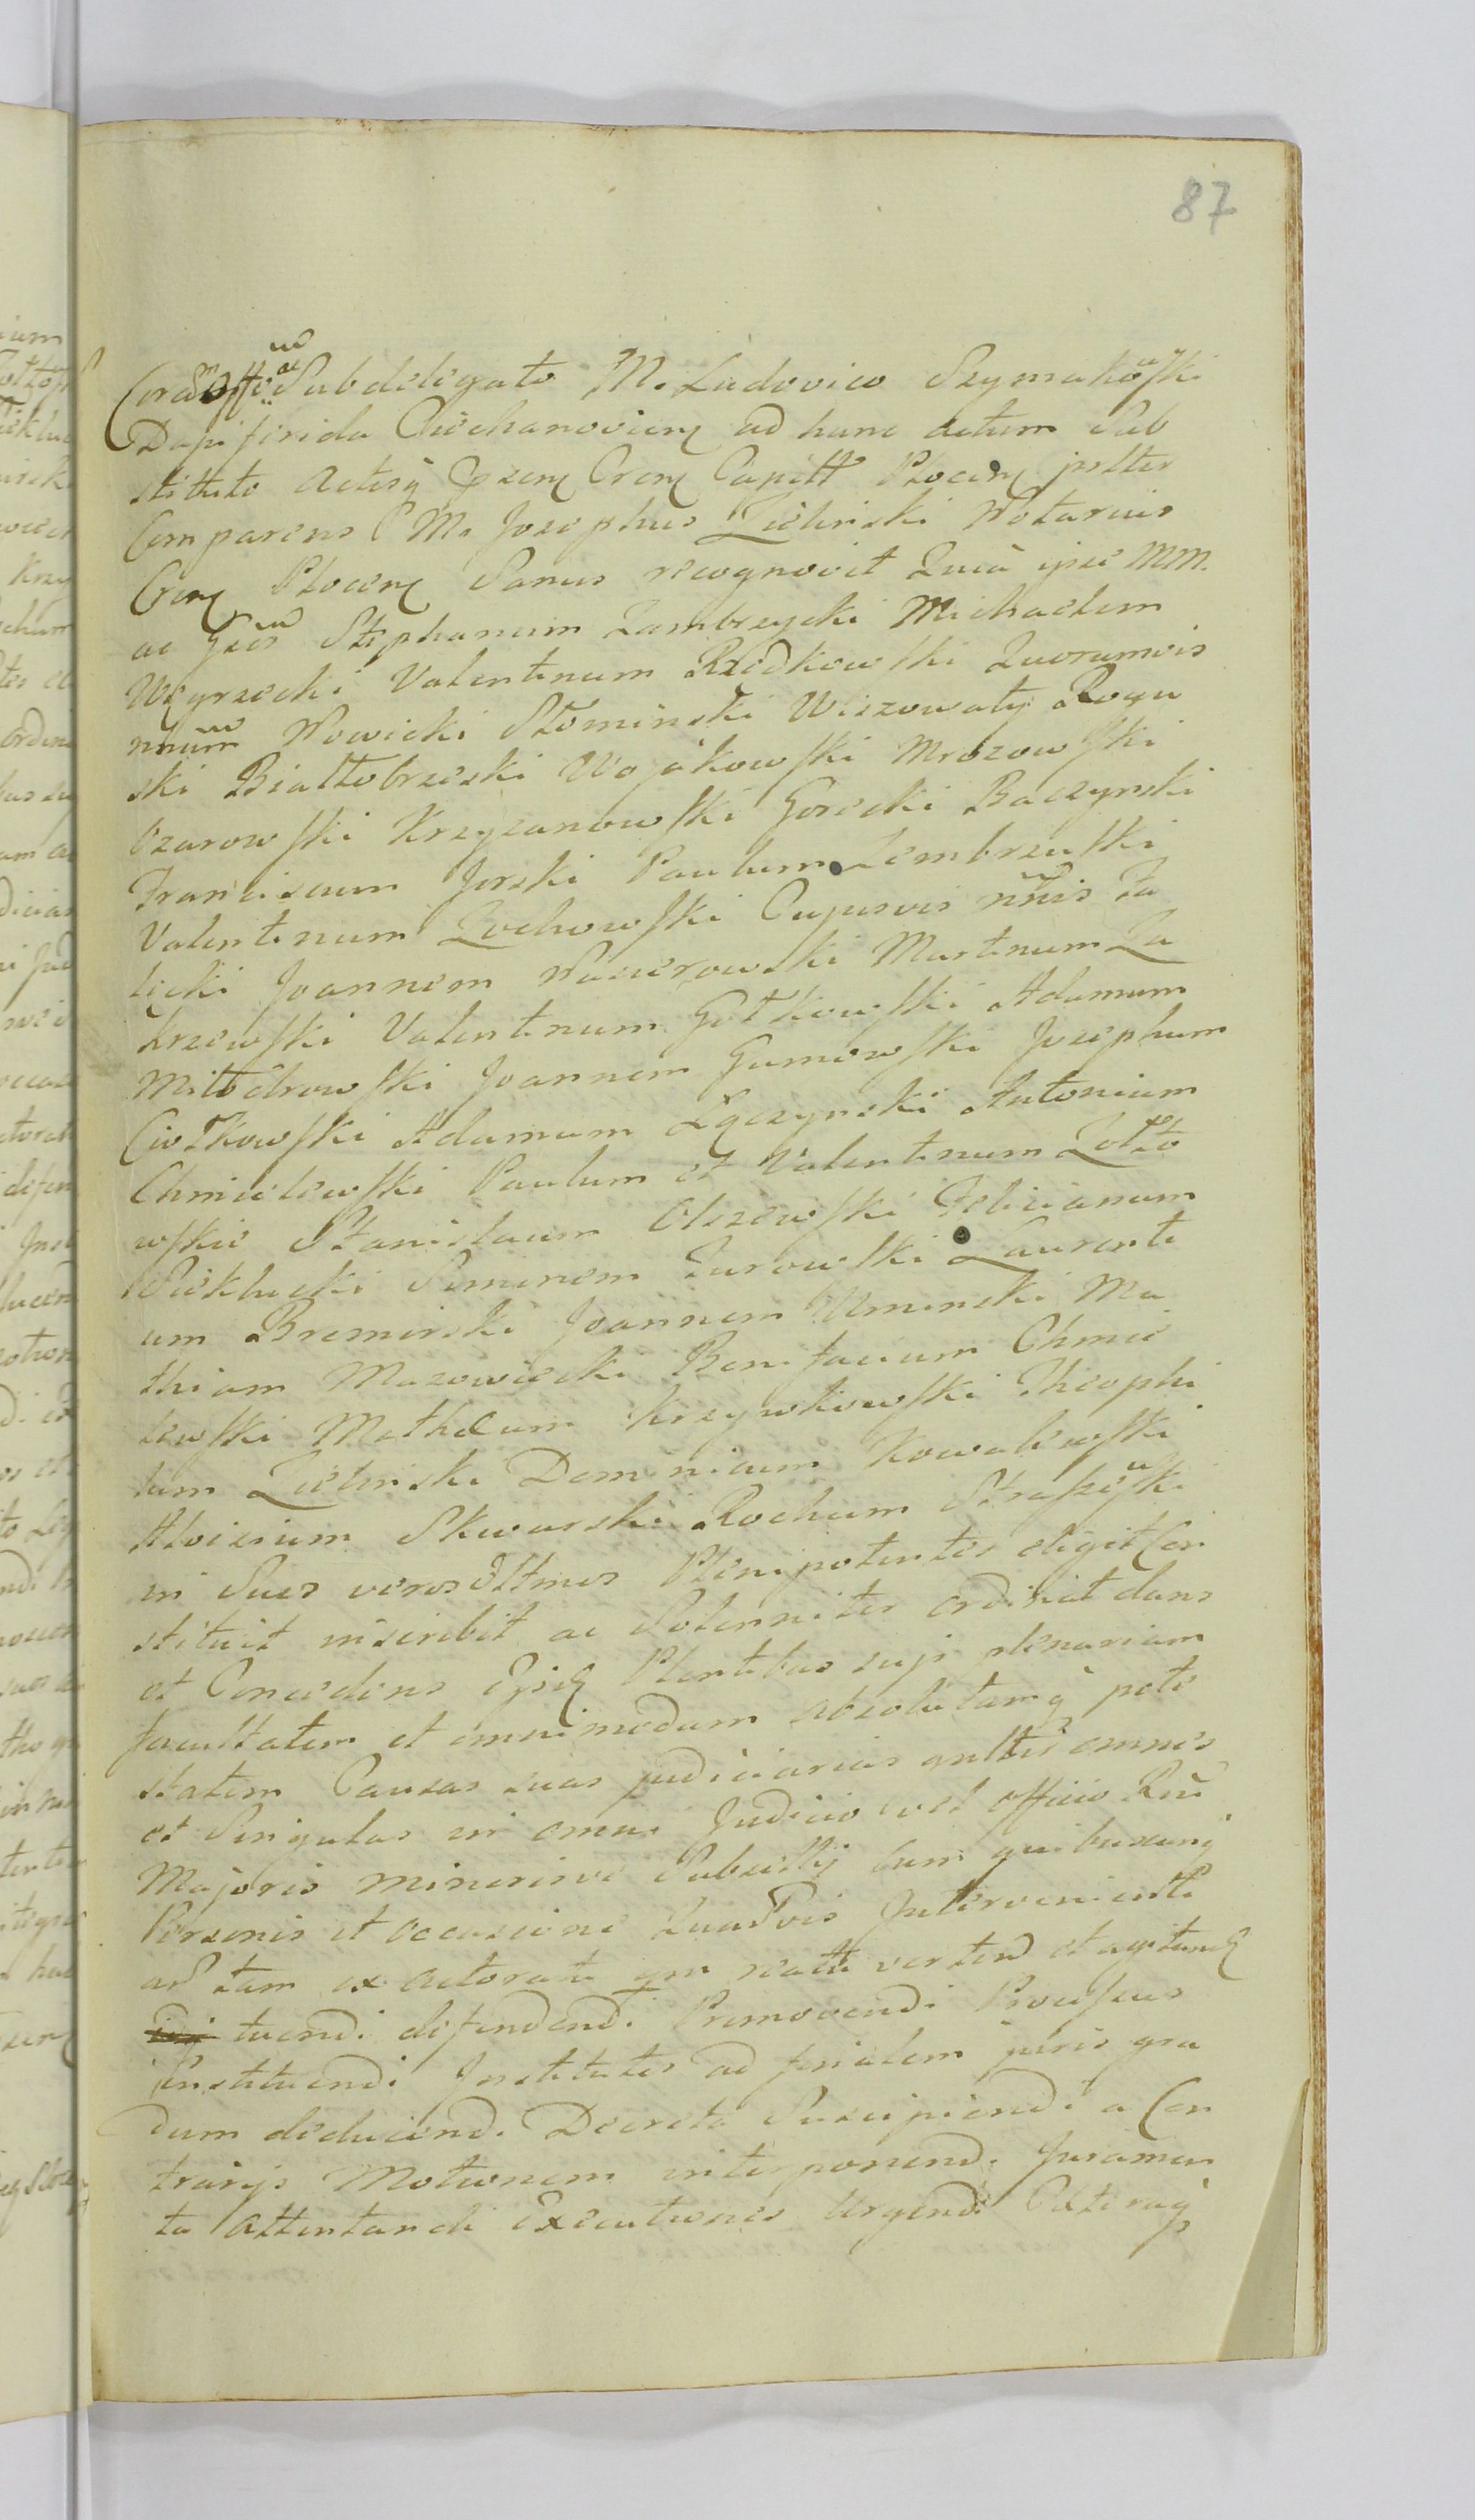 87
Coram Offo Subdelegato M. Ludovico Szymakowski
Dapiferida Ciechanovien ad hunc actum Sub
stituto Actisq Pzen Cren Capitt Plocen psltr
Comparens M. Josephus Zielinski Notarius
Cren Plocen Sanus recognovit Quia ipse MM.
ac Gsos Stephanum Zambrzycki Michaelem
Węgrzecki Valentinum Rzodkowski Quorumvis
nnum Nowicki Słominski Wiszowaty Rogu
ski Białłobrzeski Wojakowski Mrozowski
Ozarowski Krzyzanowski Gorecki Baczynski
Franciscum Jorski Paulum Zembrzuski
Valentinum Zochowski Cujusvis nnis Za
licki Joannem Nacierowski Martinum Za
krzewski Valentinum Gotkowski Adamum
Milodrowski Joannem Gumowski Josephum
Ciołkowski Adamum Łączynski Antonium
Chmielewski Paulum et Valentinum Zołto
wskie Stanislaum Olszewski Felicianum
Nieklucki Simonem Zurowski Laurenti
um Bromirski Joannem Uminski Ma
thiam Mazowiecki Bonifacium Chmie
lewski Matheum Krzywkowski Theophi
lum Zielinski Dominicum Kowalewski
Aloisium Skwarski Rochum Straszewski
in Suos veros Ittmos Plenipotentes eligit Con
stituit inscribit ac Solenniter ordinat dans
et Concedens Ipsis Plentibus suis plenariam
facultatem et omnimodam absolutamq pote
statem Causas suas judiciarias gnltr omnes
et Singulas in omni Judicio vel officio Rni
Majoris minorisve Subsellij cum quibuscunq
Personis et occasione Quadvis Intervenienti
ad tam ex actoratu qm reatu verten et agitand
tuendi defendendi Promovendi Processus
Instituendi Institutos ad finalem juris gra
dum deducend. Decreta Suscipiendi a Con
trarijs Motionem interponend. Juramen
ta Attentandi Executiones Urgendi Caeteraq